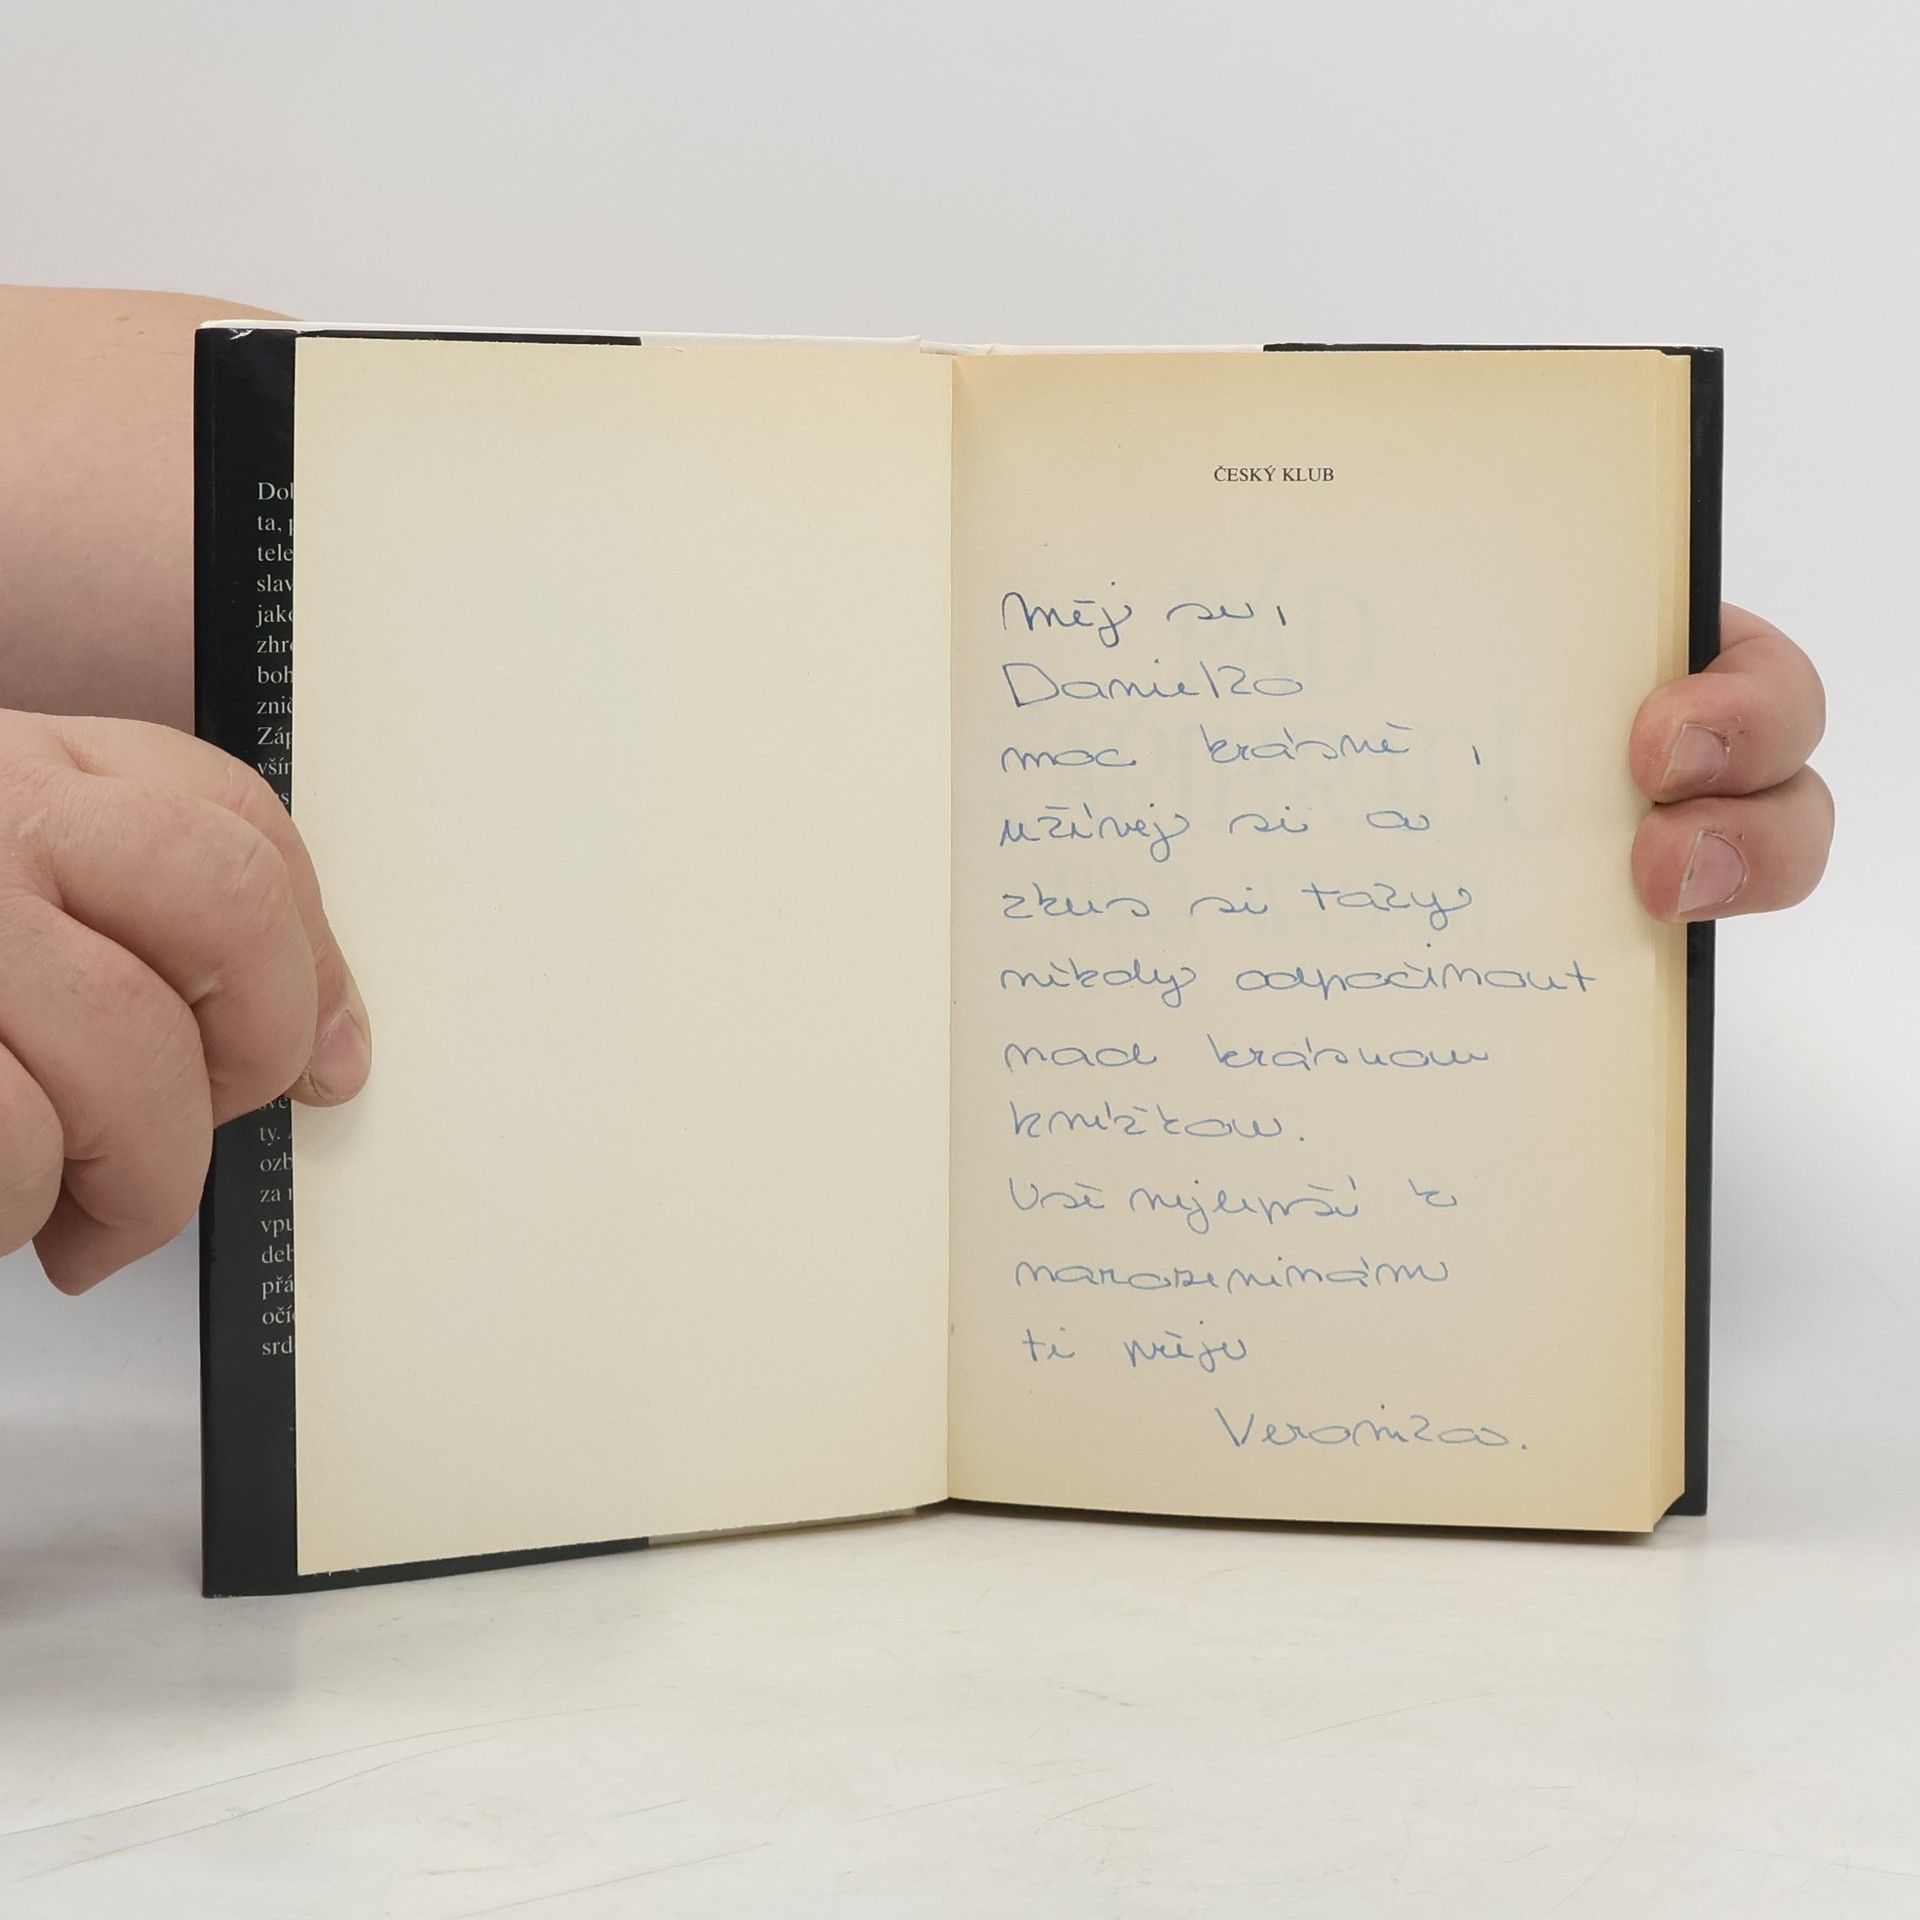 Dob
ta, p
tele
slav
jako
zhro
boh
znič
Záp
vším
ty.
ozb
za
vpu
deb
přá
očí
srd
ČESKÝ KLUB
Měj se,
Danielko
moc krásně,
užívej si a
zkus si taky
někdy odpočinout
nad krásnou
knížkou.
Vše nejlepší k
narozeninám
ti přeje
Veronika.